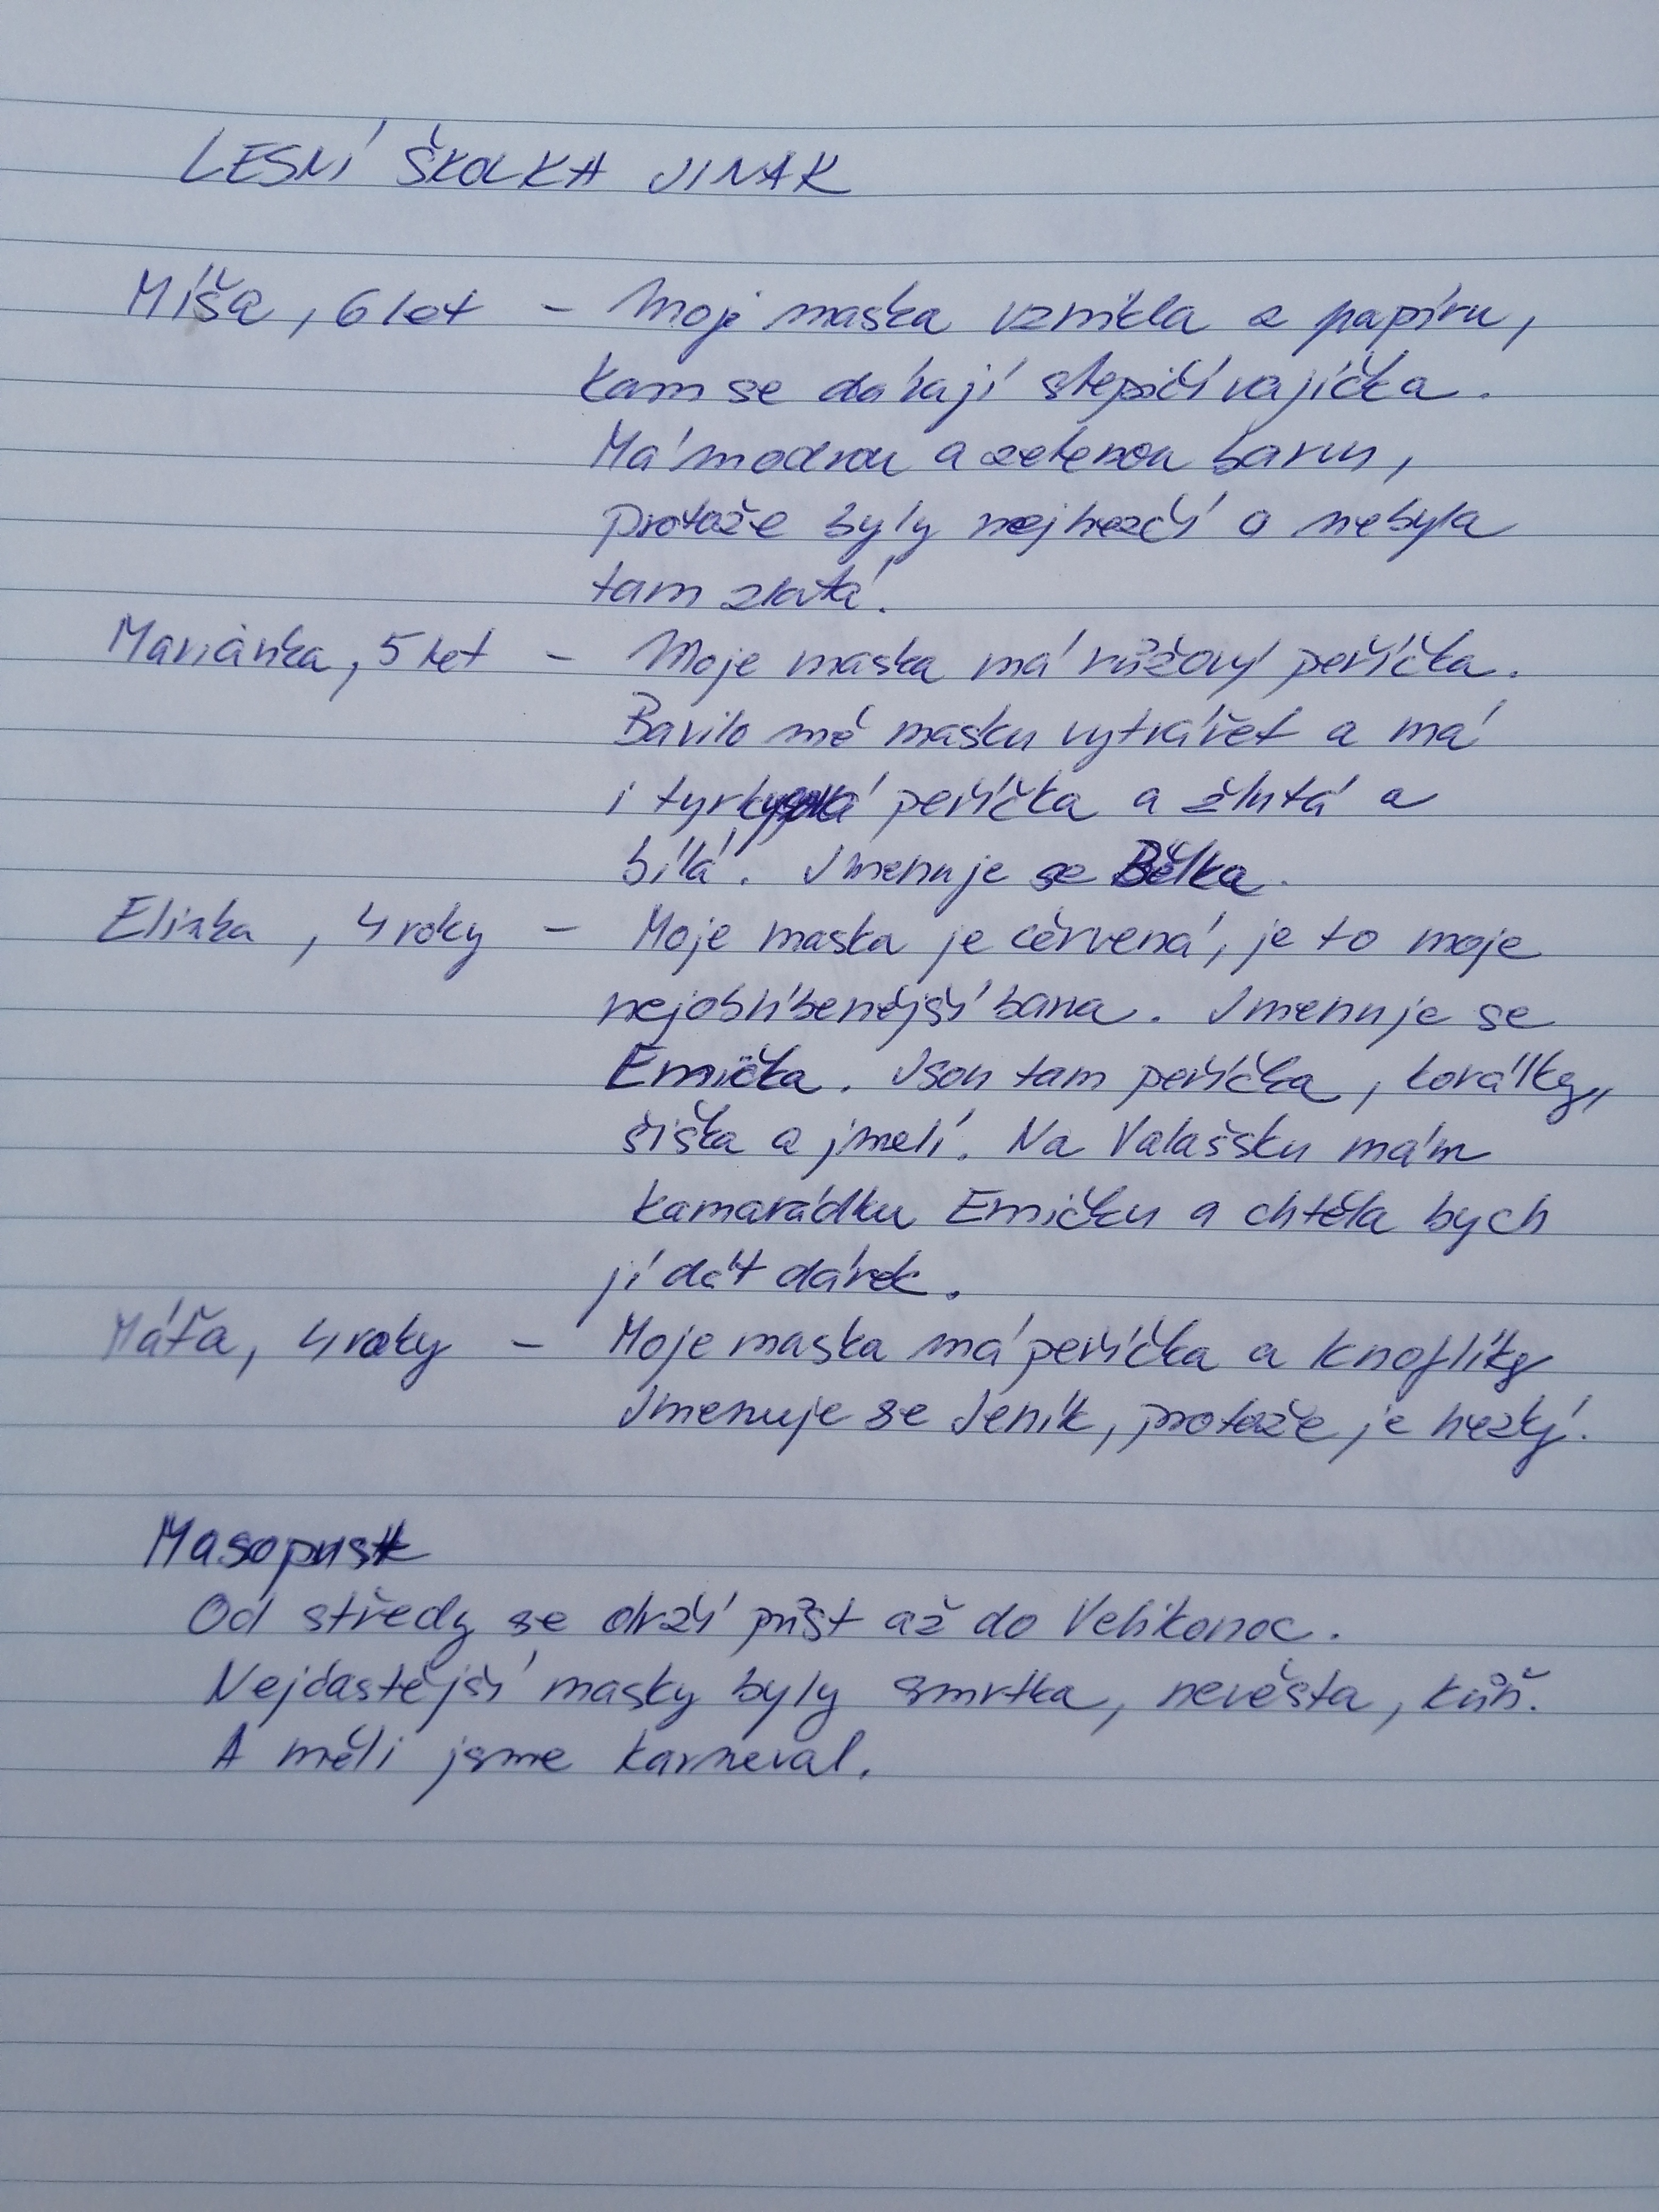 LESNÍ ŠKOLKA JINAK
Míša, 6 let - Moje maska vznikla z papíru,
kam se dávají slepičí vajíčka.
Má modrou a zelenou barvu,
protože byly nejhezčí a nebyla
tam zlatá.
Mariánka, 5 let - Moje maska má růžový peříčka.
Bavilo mě masku vytvářet a má
i tyrkysová peříčka a žlutá a
bílá. Jmenuje se Bělka.
Elinka, 4 roky - Moje maska je červená, je to moje
nejoblíbenější barva. Jmenuje se
Emička. Jsou tam peříčka, korálky,
šiška a jmelí. Na Valašsku mám
kamarádku Emičku a chtěla bych
jí dát dárek.
Máťa, 4 roky - Moje maska má peříčka a knoflíky
Jmenuje se Jeník, protože je hezký.
Masopust
Od středy se drží půst až do Velikonoc.
Nejčastější masky byly smrtka, nevěsta, kůň.
A měli jsme karneval.